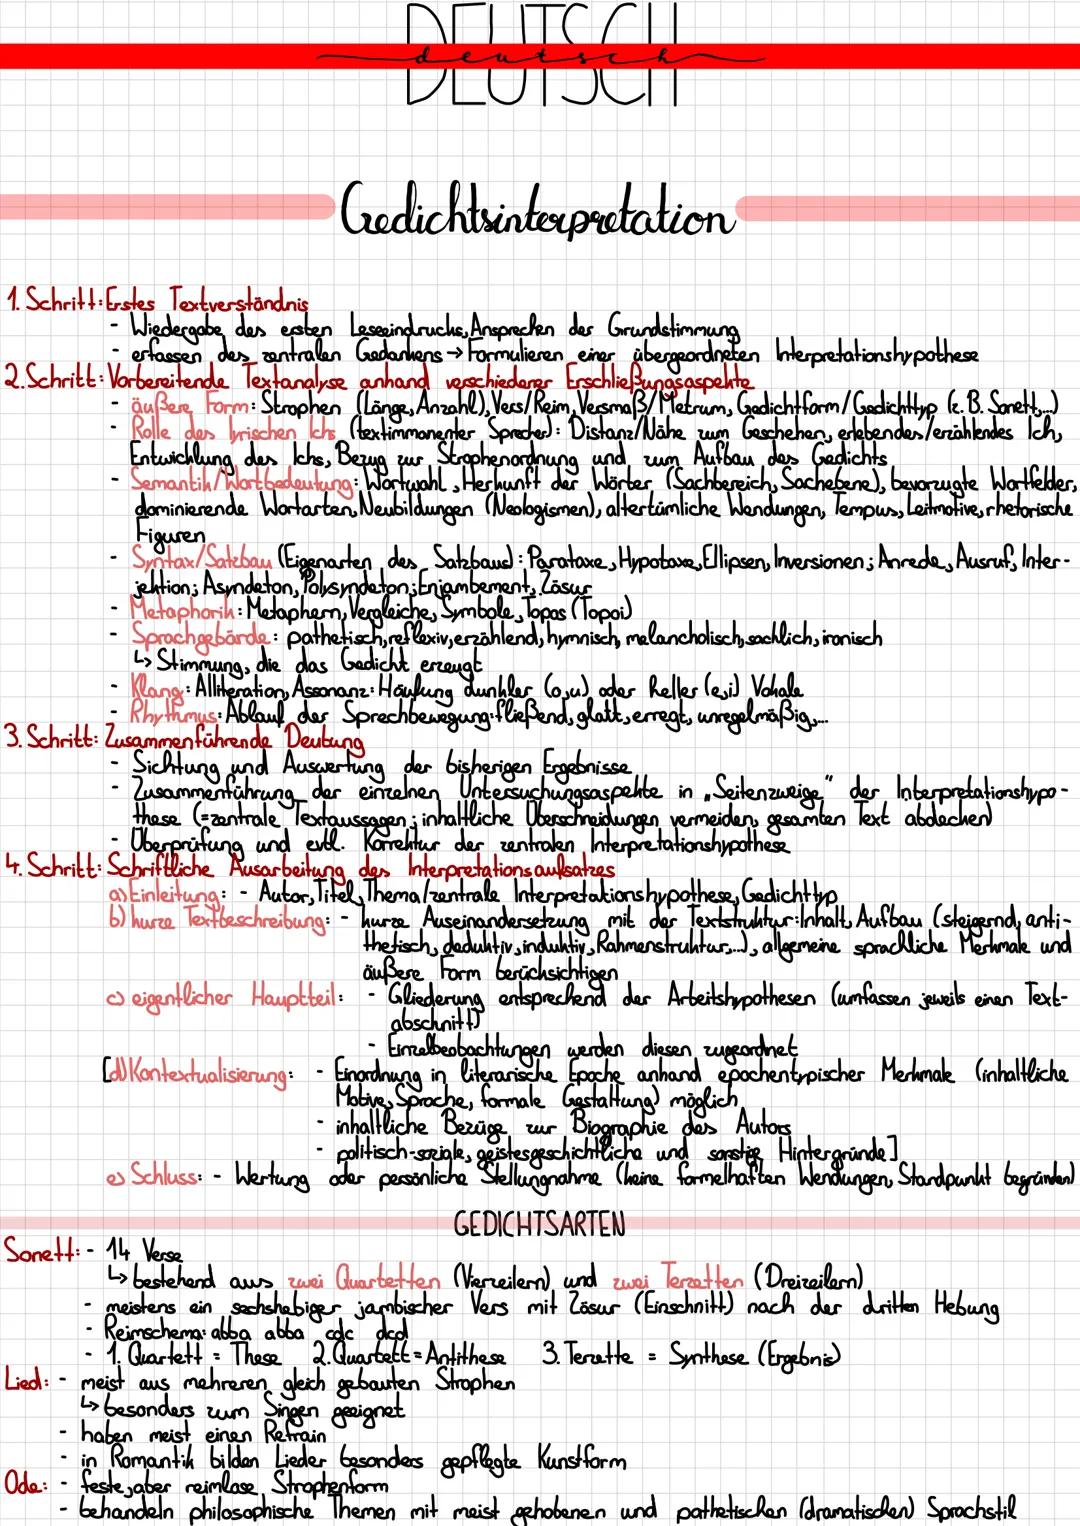 DEUTSCH
deutsch
Gedichtsinterpretation
1. Schritt: Erstes Textverständnis
- Wiedergabe des ersten Leseeindrucks, Ansprechen der Grundstimmung
- erfassen des zentralen Gedankens → Formulieren einer übergeordneten Interpretationshypothese
2. Schritt: Vorbereitende Textanalyse anhand verschiedener Erschließungsaspekte
- äußere Form: Strophen (Länge, Anzahl), Vers/Reim, Versmaß/Metrum, Gedichtform/Gedichttyp (z.B. Sonett,...)
- Rolle des lyrischen Ichs (textimmanenter Sprecher): Distanz/Nähe zum Geschehen, erlebendes/erzählendes Ich,
Entwicklung des Ichs, Bezug zur Strophenordnung und zum Aufbau des Gedichts
- Semantik/Wortbedeutung: Wortwahl, Herkunft der Wörter (Sachbereich, Sachebene), bevorzugte Wortfelder,
dominierende Wortarten, Neubildungen (Neologismen), altertümliche Wendungen, Tempus, Leitmotive, rhetorische
Figuren
- Syntax/Satzbau (Eigenarten des Satzbaus): Parataxe, Hypotaxe, Ellipsen, Inversionen; Anrede, Ausruf, Inter-
jektion; Asyndeton, Polysyndeton; Enjambement, Zäsur
- Metaphorik: Metaphern, Vergleiche, Symbole, Topos (Topoi)
- Sprachgebärde: pathetisch, reflexiv, erzählend, hymnisch, melancholisch, sachlich, ironisch
↳ Stimmung, die das Gedicht erzeugt
- Klang: Alliteration, Assonanz: Häufung dunkler (o,u) oder heller (e,i) Vokale
- Rhythmus: Ablauf der Sprechbewegung: fließend, glatt, erregt, unregelmäßig,...
3. Schritt: Zusammenführende Deutung
- Sichtung und Auswertung der bisherigen Ergebnisse
- Zusammenführung der einzelnen Untersuchungsaspekte in „Seitenzweige" der Interpretationshypo-
these (=zentrale Textaussagen; inhaltliche Überschneidungen vermeiden, gesamten Text abdecken)
- Überprüfung und evtl. Korrektur der zentralen Interpretationshypothese
4. Schritt: Schriftliche Ausarbeitung des Interpretationsaufsatzes
a) Einleitung: - Autor, Titel, Thema/zentrale Interpretationshypothese, Gedichttyp
b) kurze Textbeschreibung: - kurze Auseinandersetzung mit der Textstruktur: Inhalt, Aufbau (steigernd, anti-
thetisch, deduktiv, induktiv, Rahmenstruktur,...), allgemeine sprachliche Merkmale und
äußere Form berücksichtigen
c) eigentlicher Hauptteil: - Gliederung entsprechend der Arbeitshypothesen (umfassen jeweils einen Text-
abschnitt)
- Einzelbeobachtungen werden diesen zugeordnet
[d) Kontextualisierung: - Einordnung in literarische Epoche anhand epochentypischer Merkmale (inhaltliche
Motive, Sprache, formale Gestaltung) möglich
- inhaltliche Bezüge zur Biographie des Autors
- politisch-soziale, geistesgeschichtliche und sonstige Hintergründe]
e) Schluss: - Wertung oder persönliche Stellungnahme (keine formelhaften Wendungen, Standpunkt begründen)
GEDICHTSARTEN
Sonett: - 14 Verse
↳ bestehend aus zwei Quartetten (Vierzeilern) und zwei Terzetten (Dreizeilern)
- meistens ein sechshebiger jambischer Vers mit Zäsur (Einschnitt) nach der dritten Hebung
- Reimschema: abba abba cdc dcd
- 1. Quartett = These 2. Quartett = Antithese 3. Terzette = Synthese (Ergebnis)
Lied: - meist aus mehreren gleich gebauten Strophen
↳ besonders zum Singen geeignet
- haben meist einen Refrain
- in Romantik bilden Lieder besonders gepflegte Kunstform
Ode: - feste, aber reimlose Strophenform
- behandeln philosophische Themen mit meist gehobenen und pathetischen (dramatischen) Sprachstil